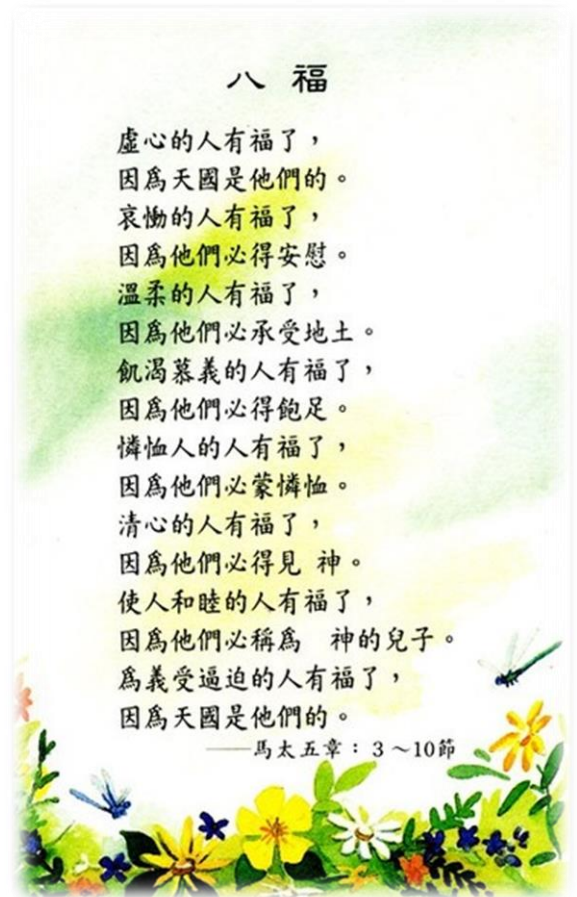 八 福
虛心的人有福了，
因爲天國是他們的。
哀慟的人有福了，
因爲他們必得安慰。
溫柔的人有福了，
因爲他們必承受地土。
飢渴慕義的人有福了，
因爲他們必得飽足。
憐恤人的人有福了，
因爲他們必蒙憐恤。
清心的人有福了，
因爲他們必得見 神。
使人和睦的人有福了，
因爲他們必稱爲　神的兒子。
爲義受逼迫的人有福了，
因爲天國是他們的。
——馬太五章：3～10節